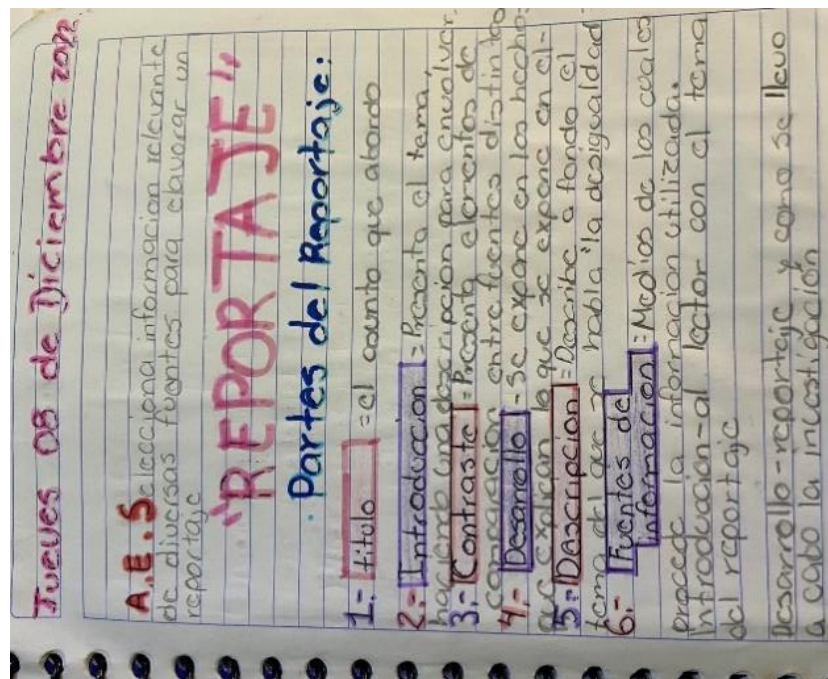 Jueves 08 de Diciembre 2022
A.E. Selecciona informacion relevante
de diversas fuentes para elavorar un
reportaje
"REPORTAJE"
Partes del Reportaje:
1.- titulo = el asunto que abordo
2.- Introduccion = Presenta el tema,
haciendo una descripcion para envolver.
3.- Contraste = Presenta elementos de
comparacion entre fuentes distintas
4.- Desarrollo - Se expone en los hechos
que explican lo que se expone en el-
5.- Descripcion = Describe a fondo el
tema del que se habla "la desigualdad
6.- Fuentes de
informacion = Medios de los cuales
procede la informacion utilizada.
Introduccion-al lector con el tema
del reportaje
Desarrollo-reportaje y como se llevo
a cabo la investigación